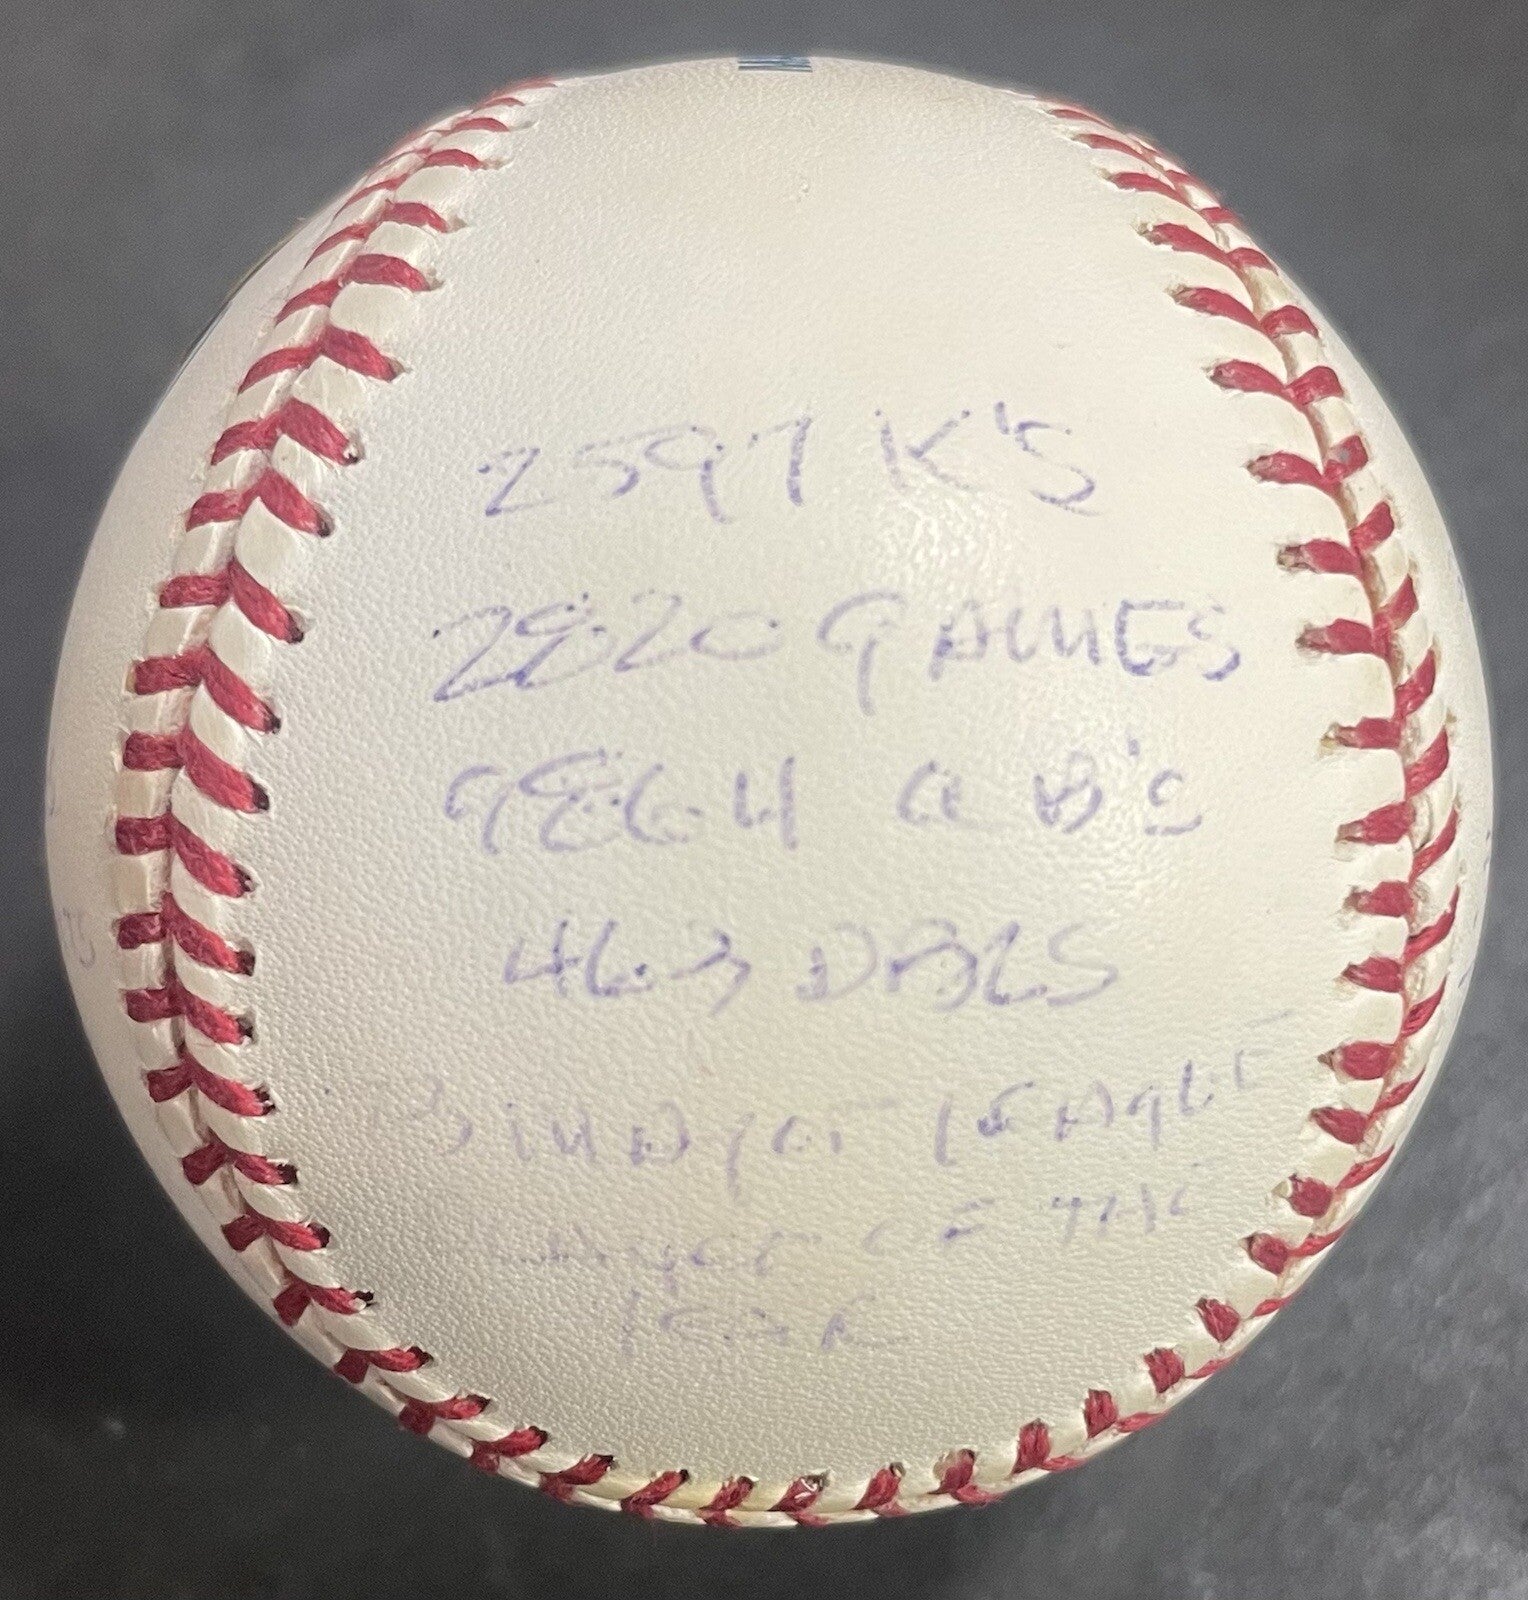 2597 K'S
2820 GAMES
9864 AB'S
463 DBLS
LEAGUE
PLAYER OF THE